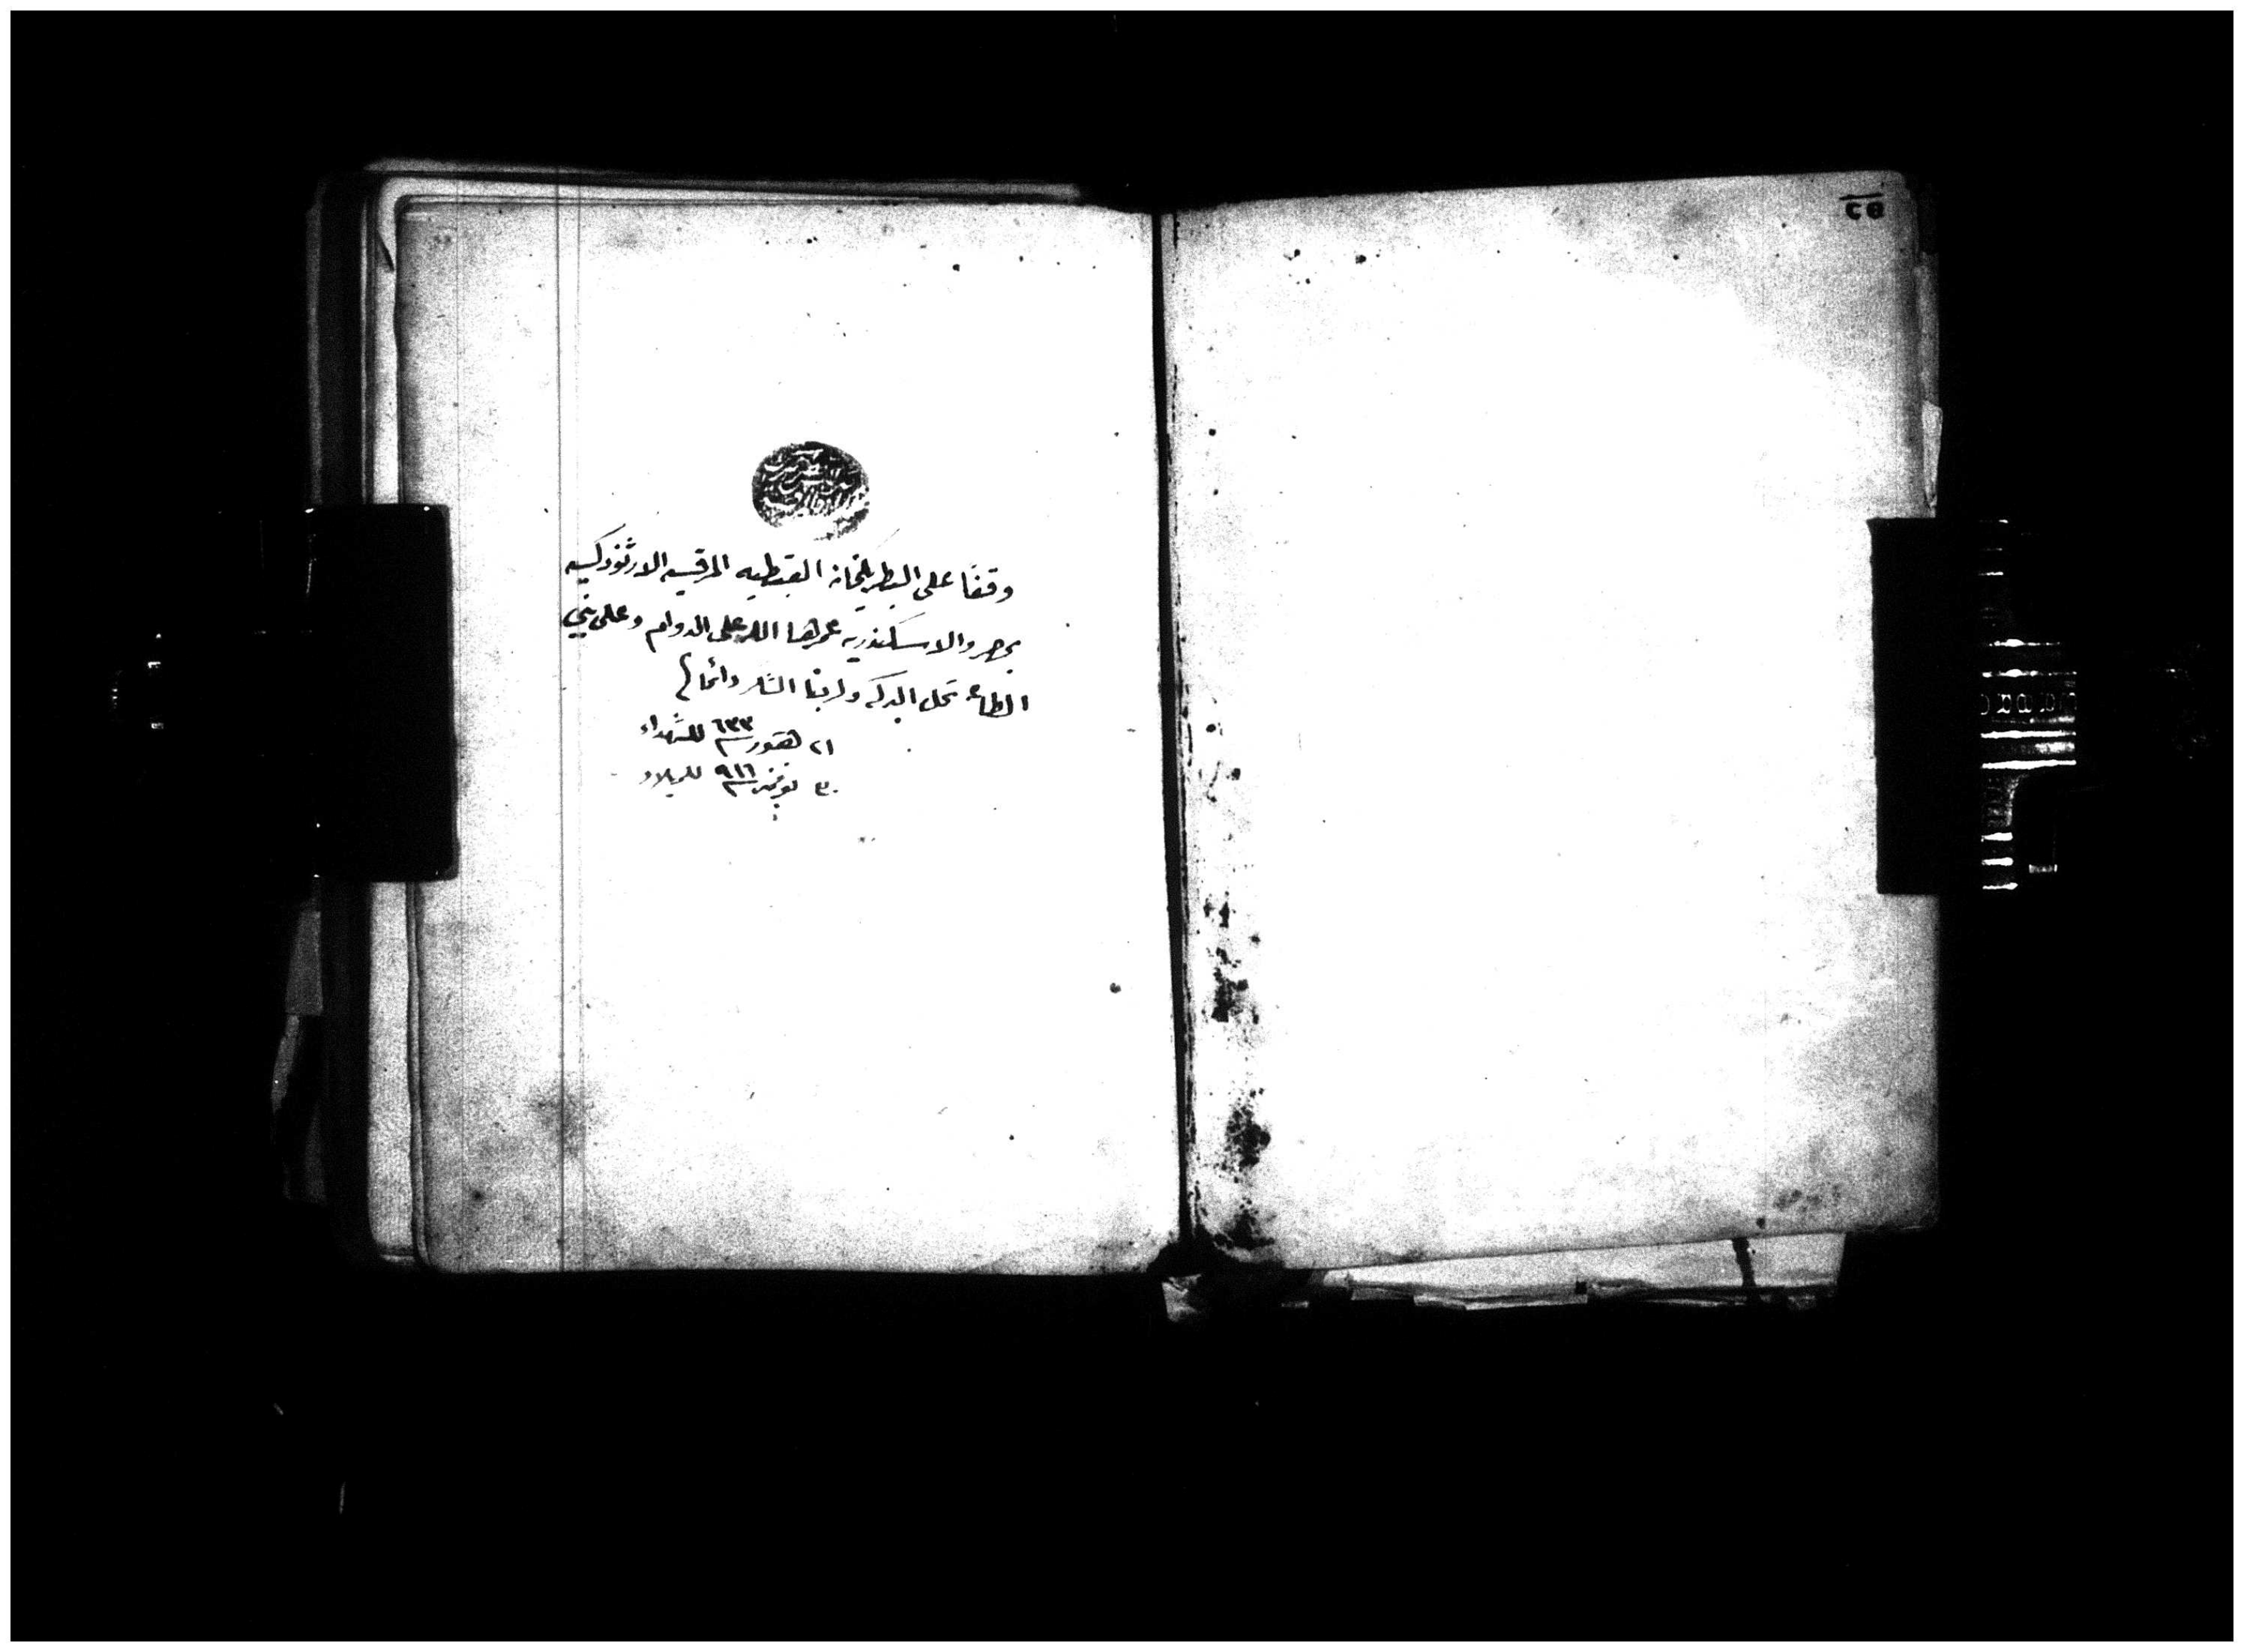 وقفًا على البطريكخانه القبطيه المرقسيه الارثوذكسيه
بمصر والاسكندريه عمرها الله على الدوام وعلى بني
الطاعه تحل البركه ولربنا الشكر دائما
٢١ هتور سنة ٦٣٣ للشهداء
٣٠ نوفمبر سنة ٩١٦ للميلاد